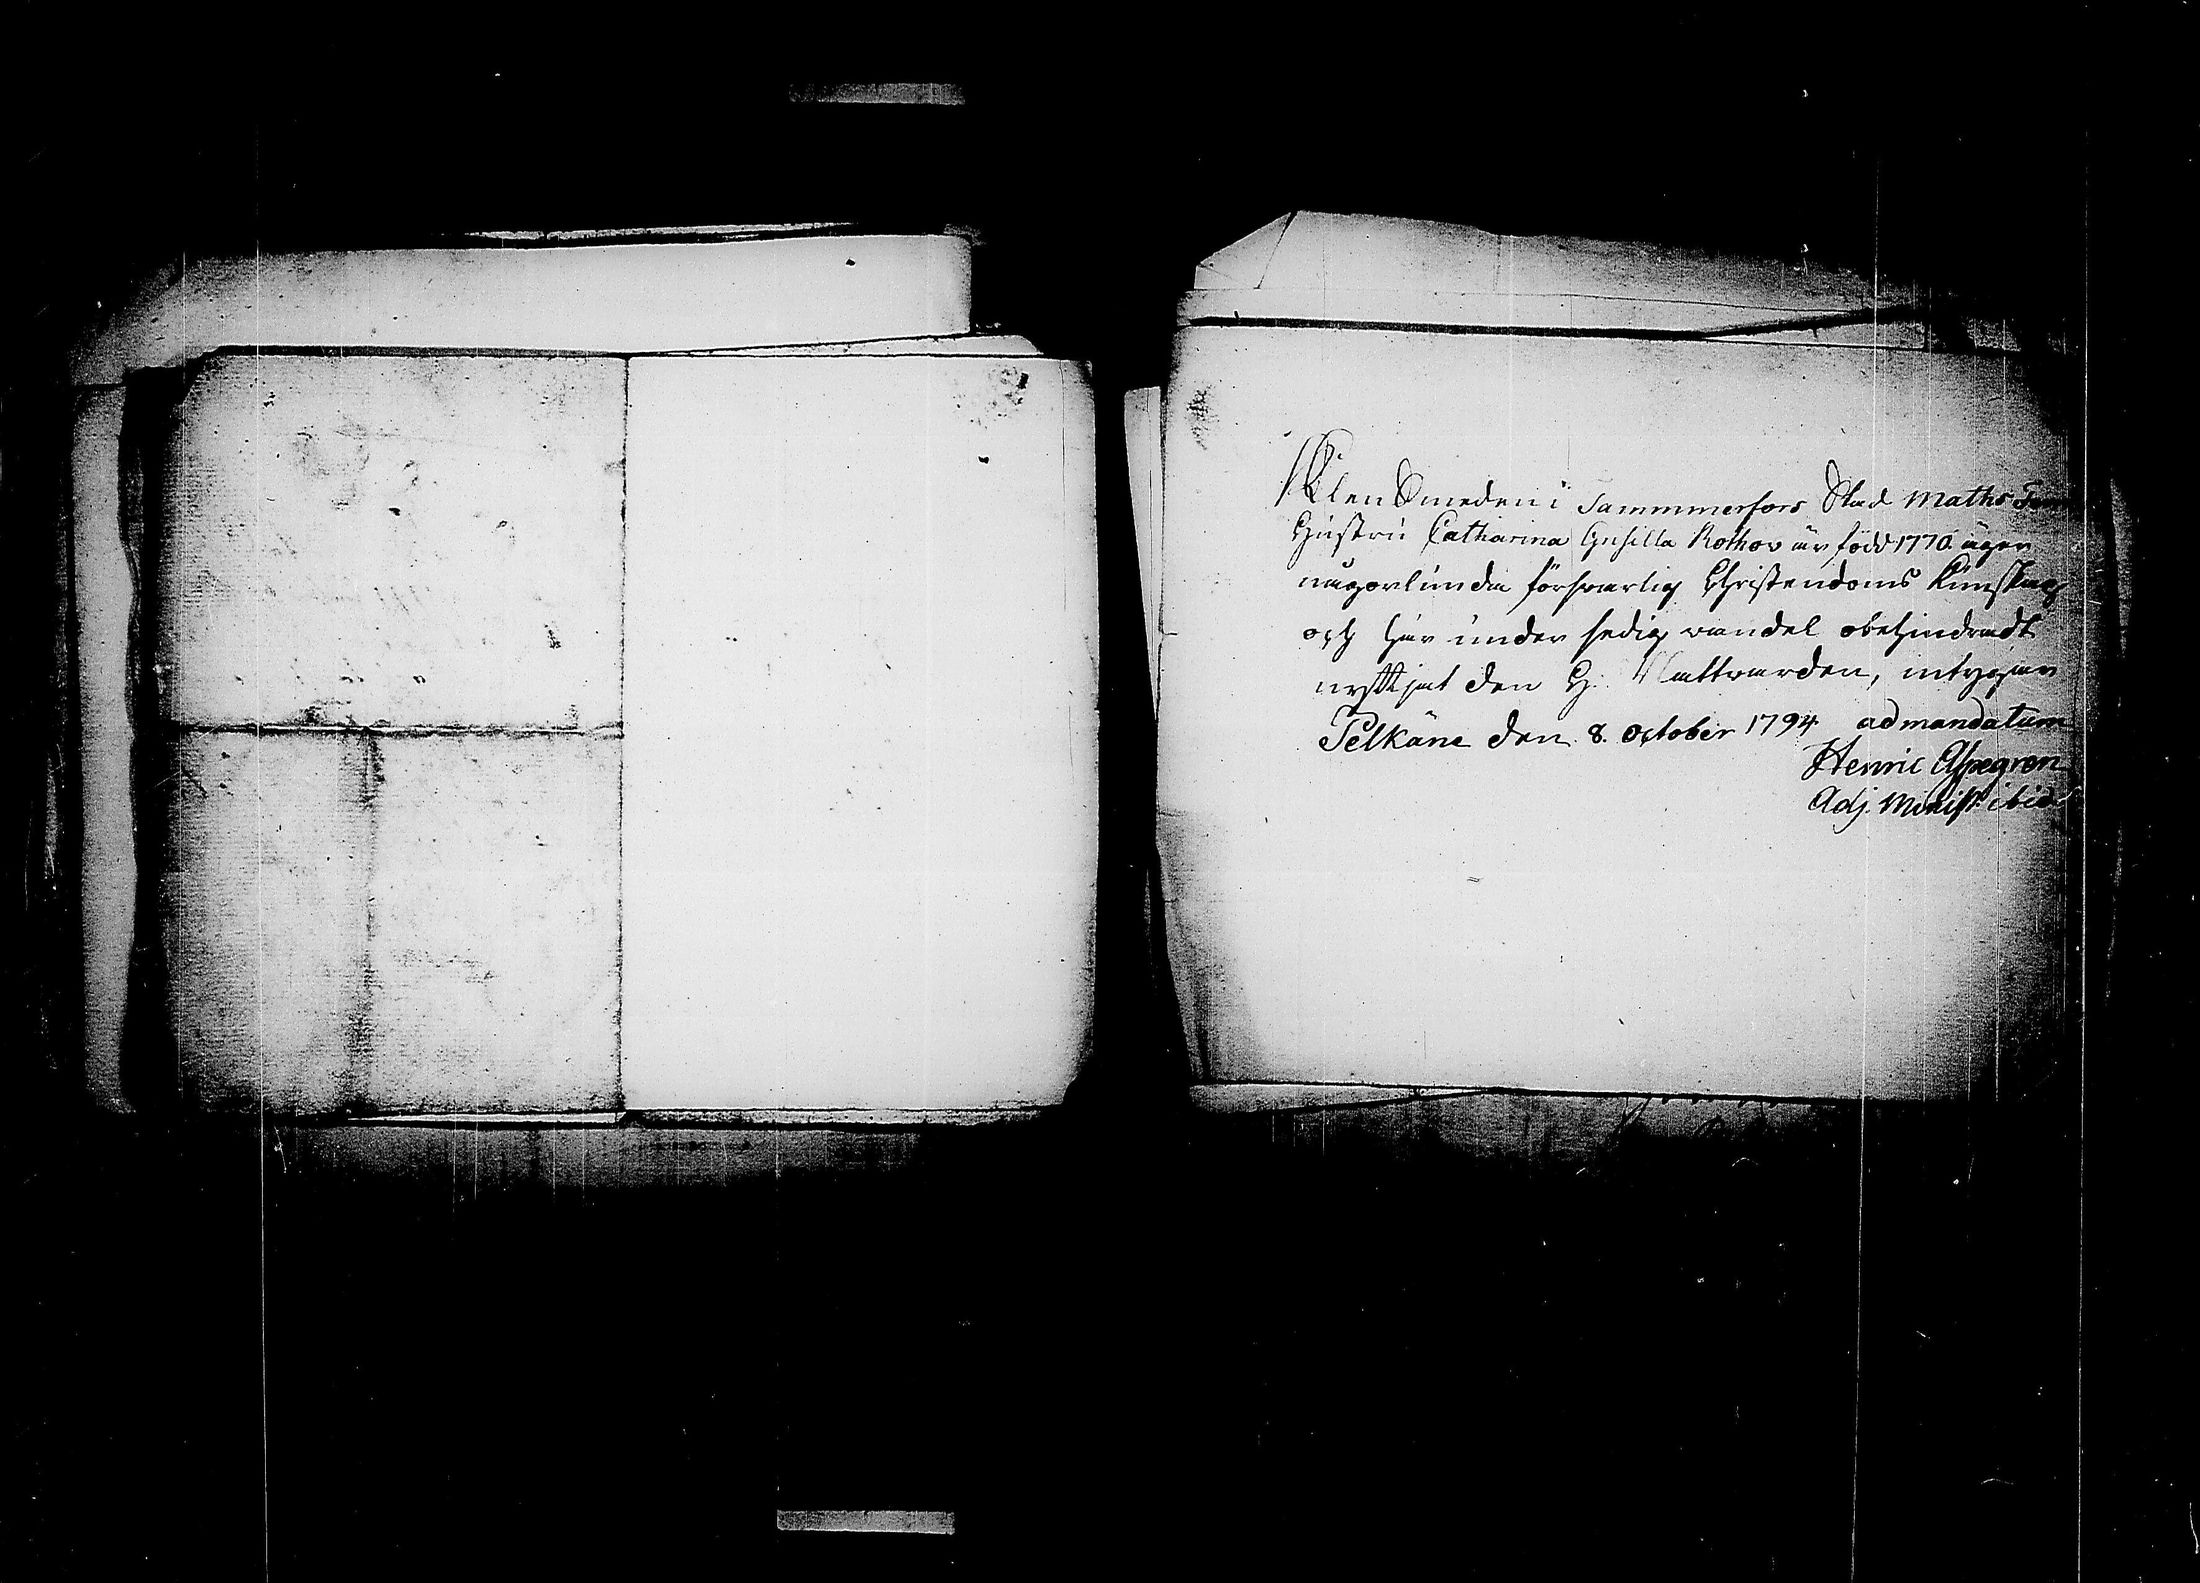 Klensmeden i Tammmerfors Stad Maths
Hustru Catharina Gusilla Rothov är född 1770. äger
någorlunda försvarlig Christendoms Kunskap
och här under sedig vandel obehindradt
nyttjat den H. Nattvarden, intygar
Pelkäne den 8. October 1794 ad mandatum
Henric Aspegren
Adj. Minist. ibid